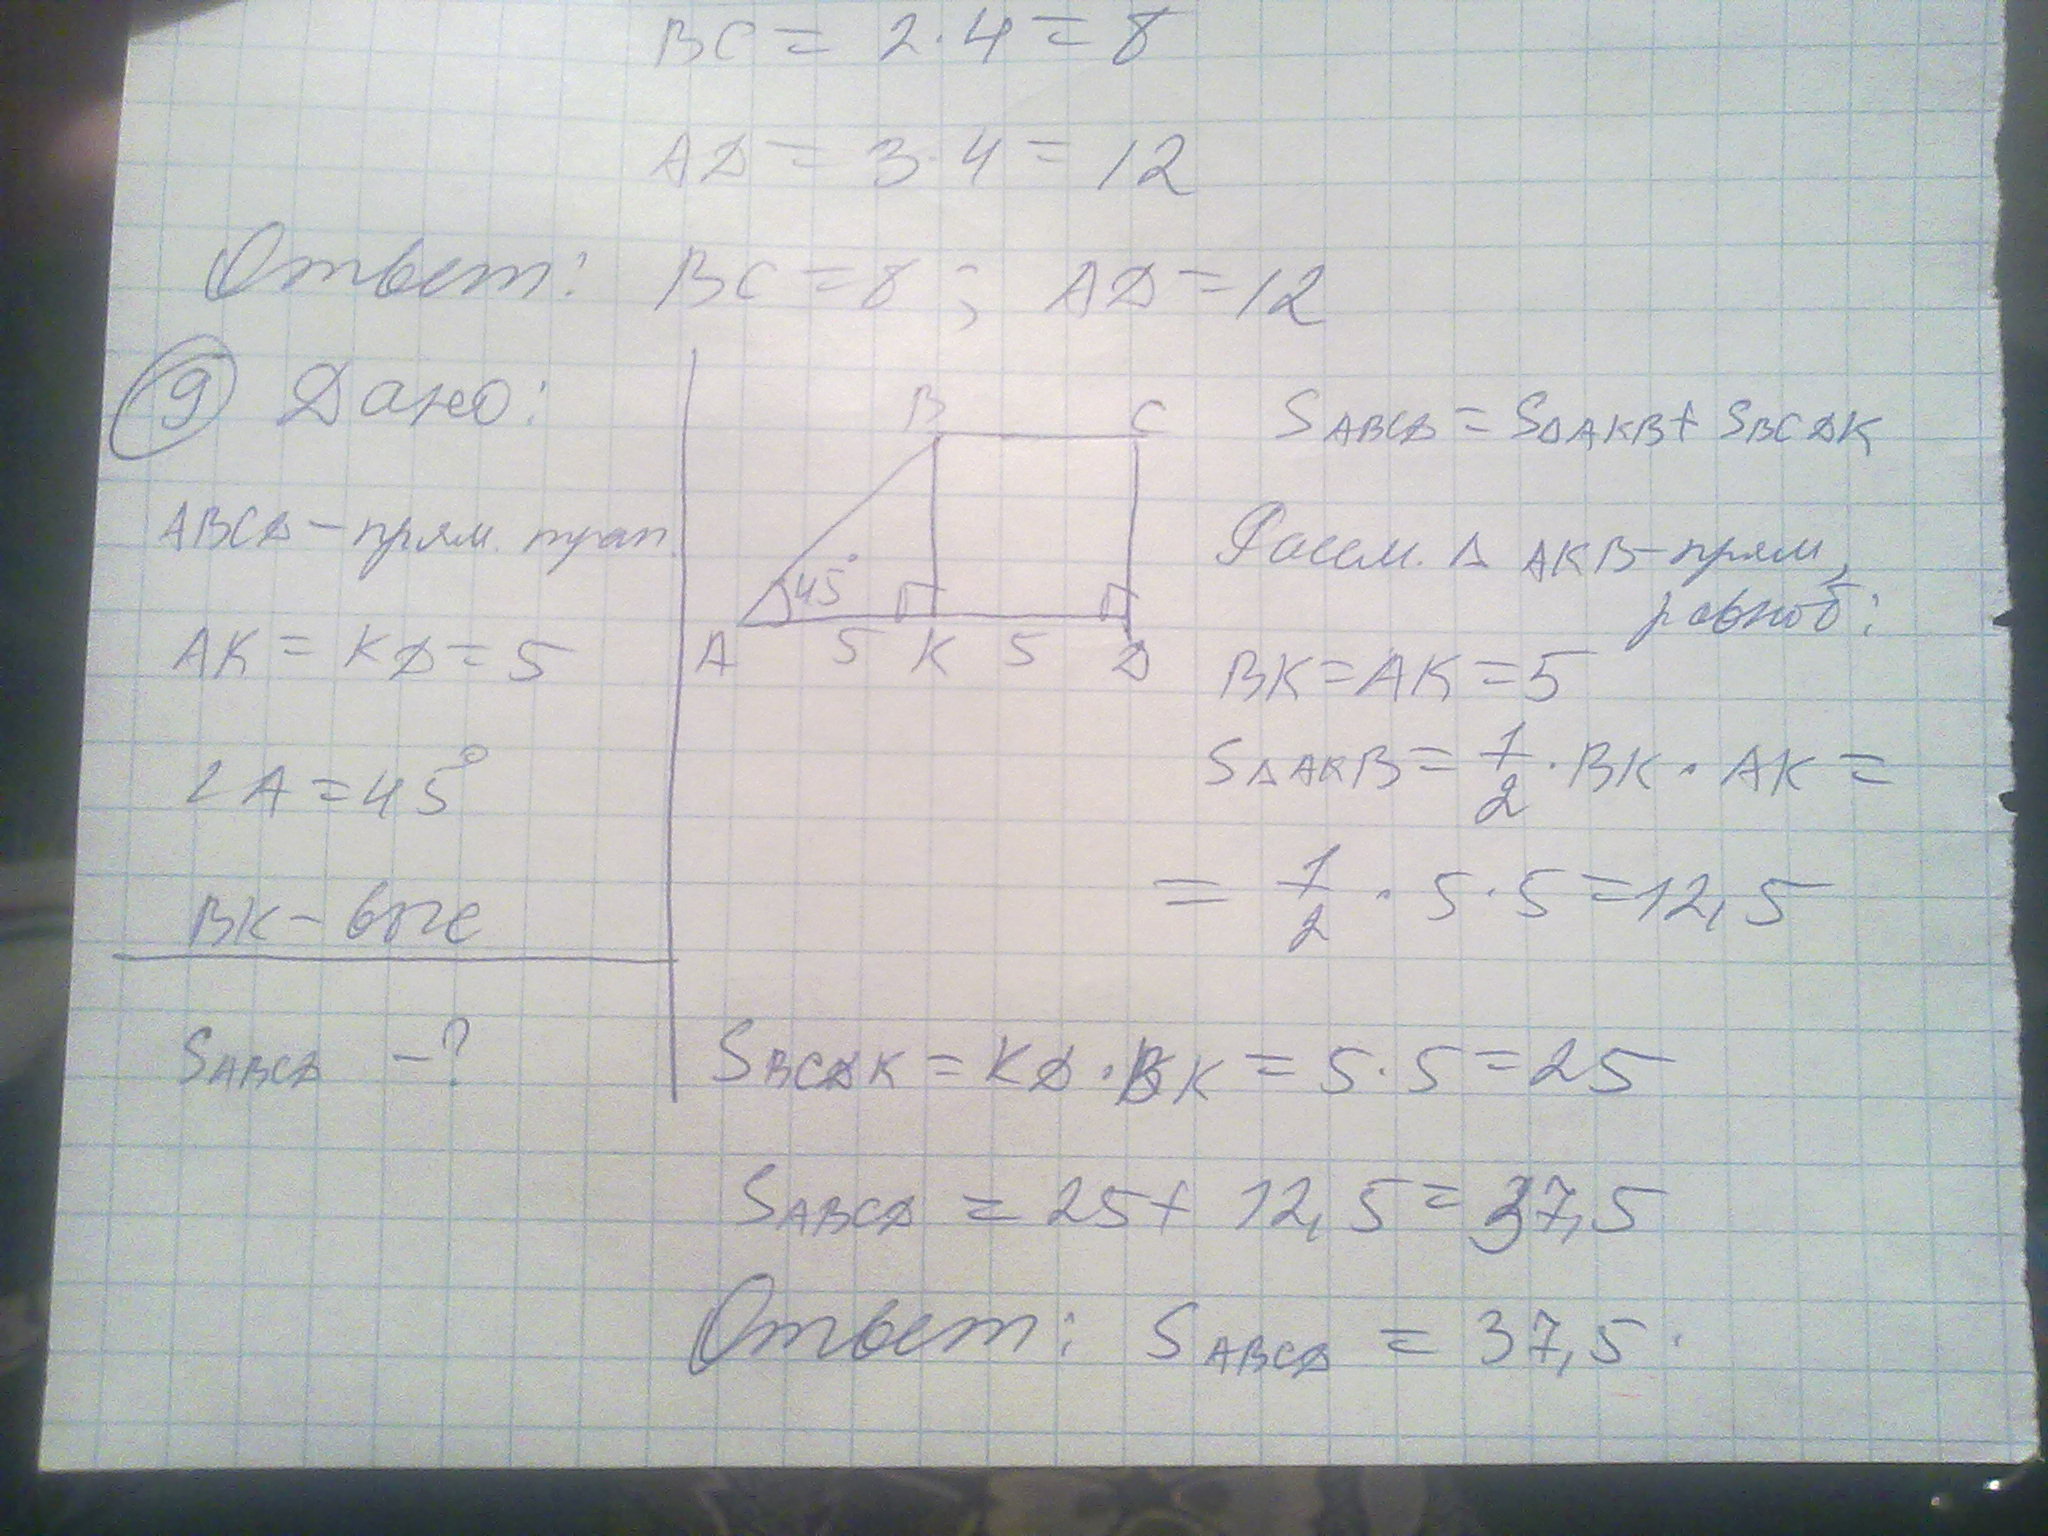 BC = 2·4 = 8
AD = 3·4 = 12
Ответ: BC = 8; AD = 12
9 Дано:
ABCD – прям. трап.
AK = KD = 5
∠A = 45°
BK –
S ABCD – ?
B C
45°
A 5 K 5 D
S ABCD = S ΔAKB + S BCDK
Рассм. Δ AKB – прям,
равноб:
BK = AK = 5
S ΔAKB = 1/2 · BK · AK =
= 1/2 · 5 · 5 = 12,5
S BCDK = KD · BK = 5 · 5 = 25
S ABCD = 25 + 12,5 = 37,5
Ответ: S ABCD = 37,5.